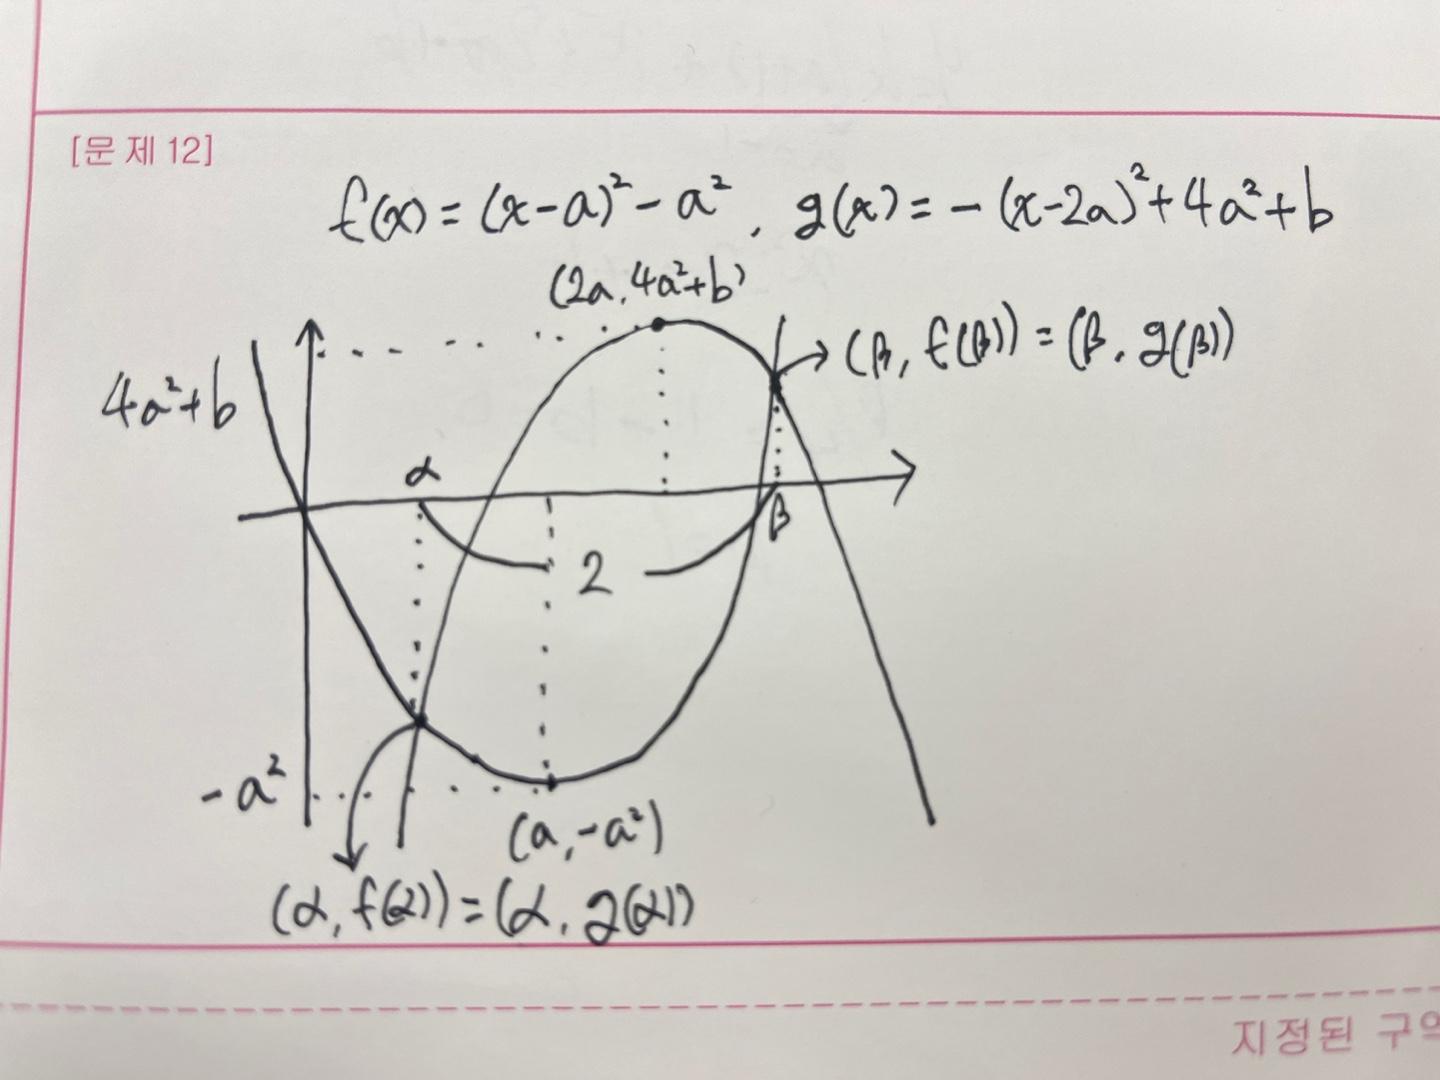 [문 제 12]
f(x) = (x-a)² - a², g(x) = - (x-2a)² + 4a² + b
(2a, 4a²+b)
(β, f(β)) = (β, g(β))
4a²+b
α
β
2
-a²
(a, -a²)
(α, f(α)) = (α, g(α))
지정된 구역